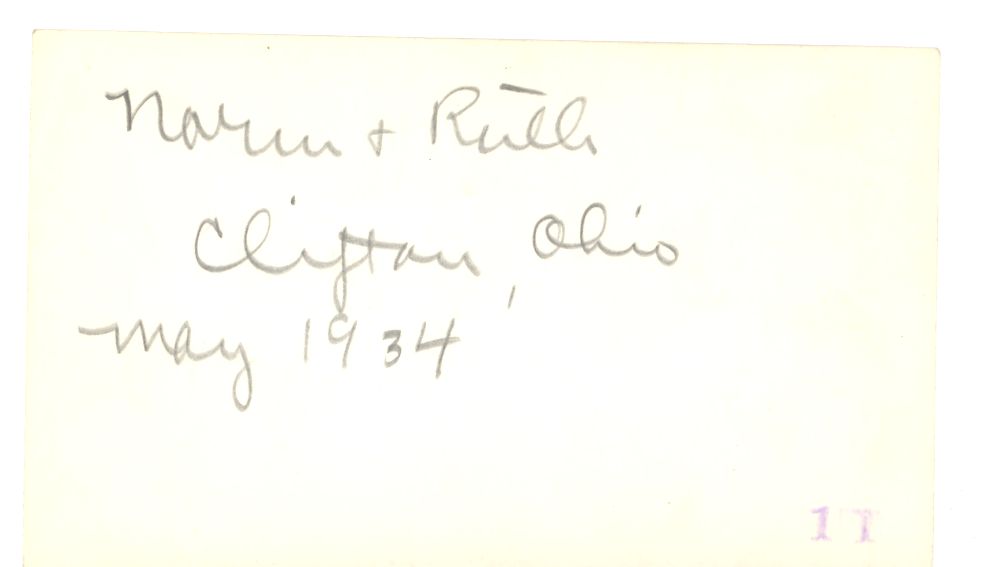 Norm + Ruth
Clifton, Ohio
May 1934
11